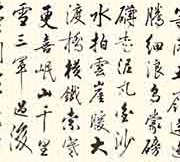 騰細浪烏蒙磅
礴走泥丸金沙
水拍雲崖暖大
渡橋橫鐵索寒
更喜岷山千里
雪三軍過後